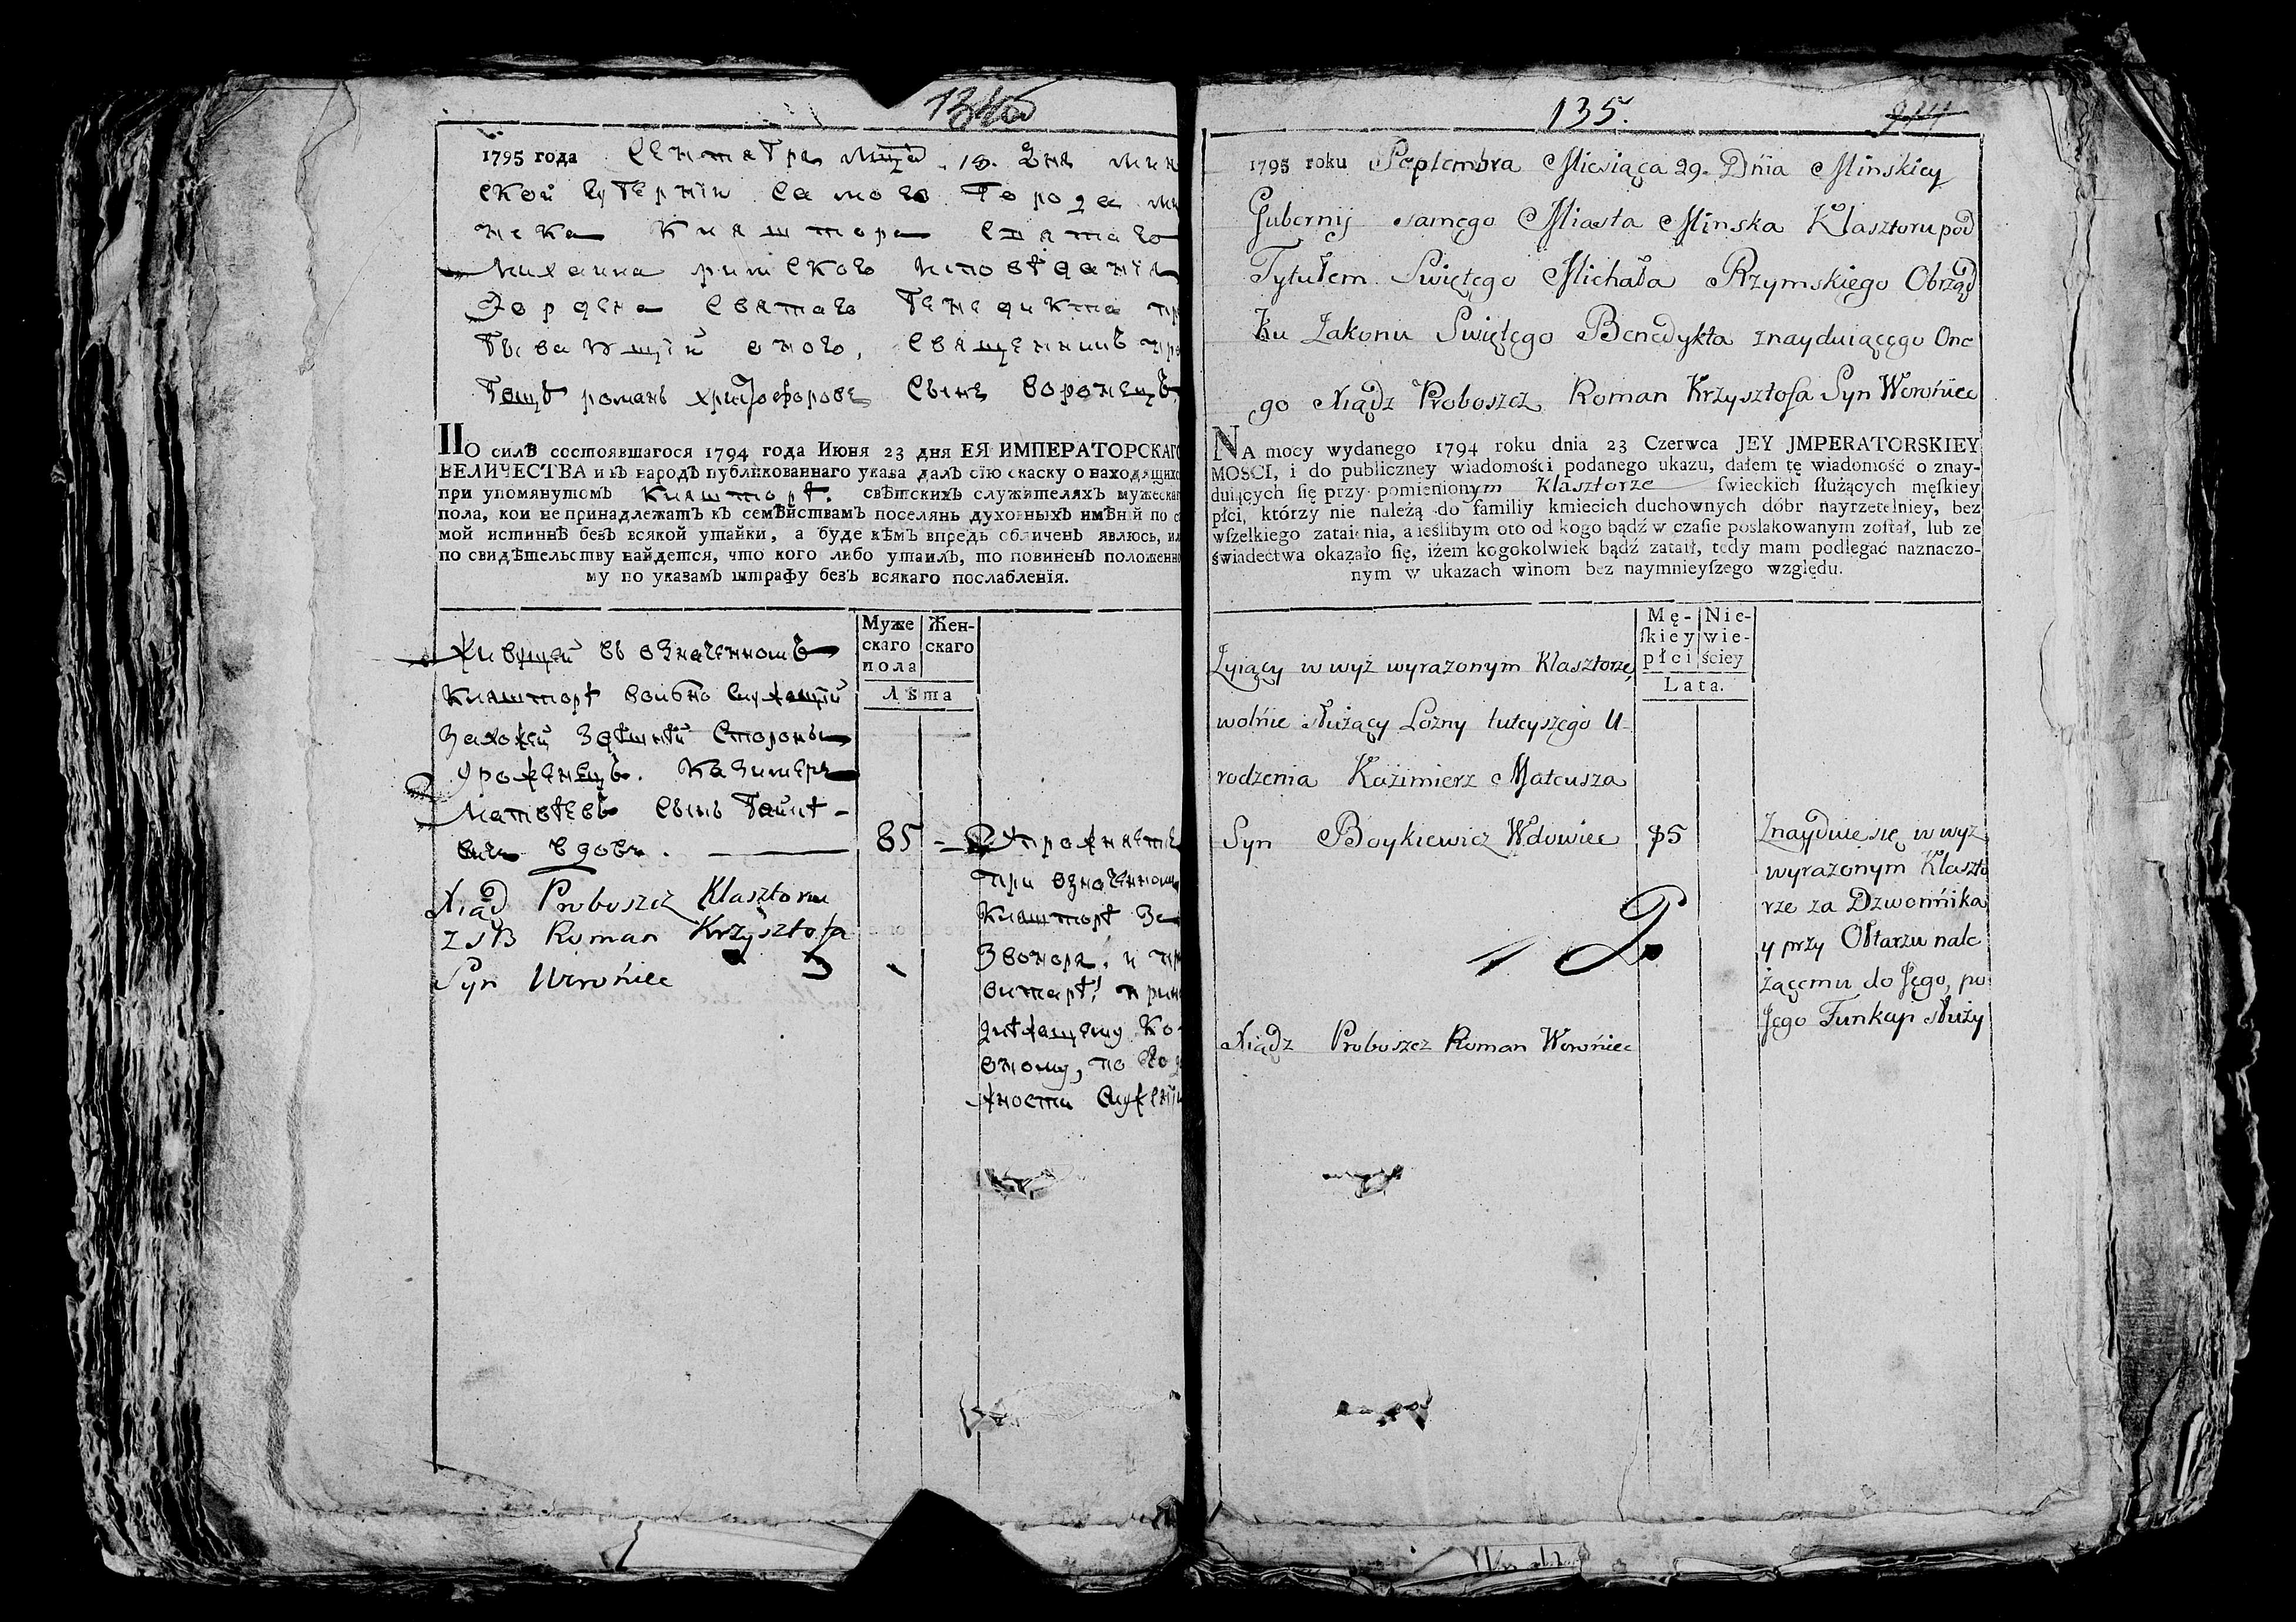 135.
1795 года Сентября мца 19. дня мин
ской губернии самого города ми
нска кляштора святаго
Михаила римского исповѣданїя
Эордена святаго Бенедикта пр
бывающїй оного, священникъ про
бощъ романъ христофоровъ сынъ воронецъ
ПО силѣ состоявшагося 1794 года Июня 23 дня ЕЯ ИМПЕРАТОРСКАГО
ВЕЛИЧЕСТВА и въ народъ публикованнаго указа далъ сїю скаску о находящихс
при упомянутомъ кляшторѣ. свѣтскихъ служителяхъ мужескаг
пола, кои не принадлежатъ къ семѣйствамъ поселянъ духовныхъ имѣнїй по с
мой истиннѣ безъ всякой утайки, а буде кѣмъ впредь обличенъ явлюсь, ил
по свидѣтельству найдется, что кого либо утаилъ, то повиненъ положенно
му по указамъ штрафу безъ всякаго послабленїя.
Муже
скаго
пола
Жен-
скаго
Лѣта
Живущей въ означенномъ
кляшторѣ волно служащїй
Захожей здѣшнѣй стороны
уроженецъ. Казимеръ
Матвѣевъ сынъ Бойкѣ-
вичъ вдовъ. 85
Упражняетъ
при означенном
кляшторѣ за
звонаря. и пр
олтарѣ! прина
длѣжащему ко
оному, по дол
жности служенїи
Xiąd Proboszcz Klasztoru
Z S B Roman Krzysztofa
Syn Woroniec
1795 roku Septembra Miesiąca 29. Dnia Minskiey
Gubernij samego Miasta Minska Klasztoru pod
Tytułem Swiętego Michała Rzymskiego Obrząd
ku Zakonu Swiętego Benedykta znayduiącęgo One
go Xiądz Proboszcz Roman Krzysztofa Syn Woroniec
NA mocy wydanego 1794 roku dnia 23 Czerwca JEY JMPERATORSKIEY
MOSCI, i do publiczney wiadomości podanego ukazu, dałem tę wiadomość o znay-
duiących ſię przy pomienionym Klasztorze ſwieckich ſłużących męſkiey
płci, którzy nie należą do familiy kmiecich duchownych dóbr nayrzetelniey, bez
wſzelkiego zataienia, a ieślibym oto od kogo bądź w czaſie poslakowanym zoſtał, lub ze
świadectwa okazało ſię, iżem kogokolwiek bądź zataił, tedy mam podlegać naznaczo-
nym w ukazach winom bez naymnieyſzego względu.
Mę-
ſkiey
płci
Nie-
wie-
ściey
Lata.
Zyiący w wyż wyrażonym Klasztorze,
wolnie służący Lozny tuteyszego U-
rodzenia Kazimierz Mateusza
Syn Boykiewicz Wdowiec 85
Znayduie się w wyż
wyrazonym Klaszto
rze za Dzwonnika
y przy Ołtarzu nale
żącemu do Jego, po
Jego Funkcyi służy
Xiądz Proboszcz Roman Woroniec